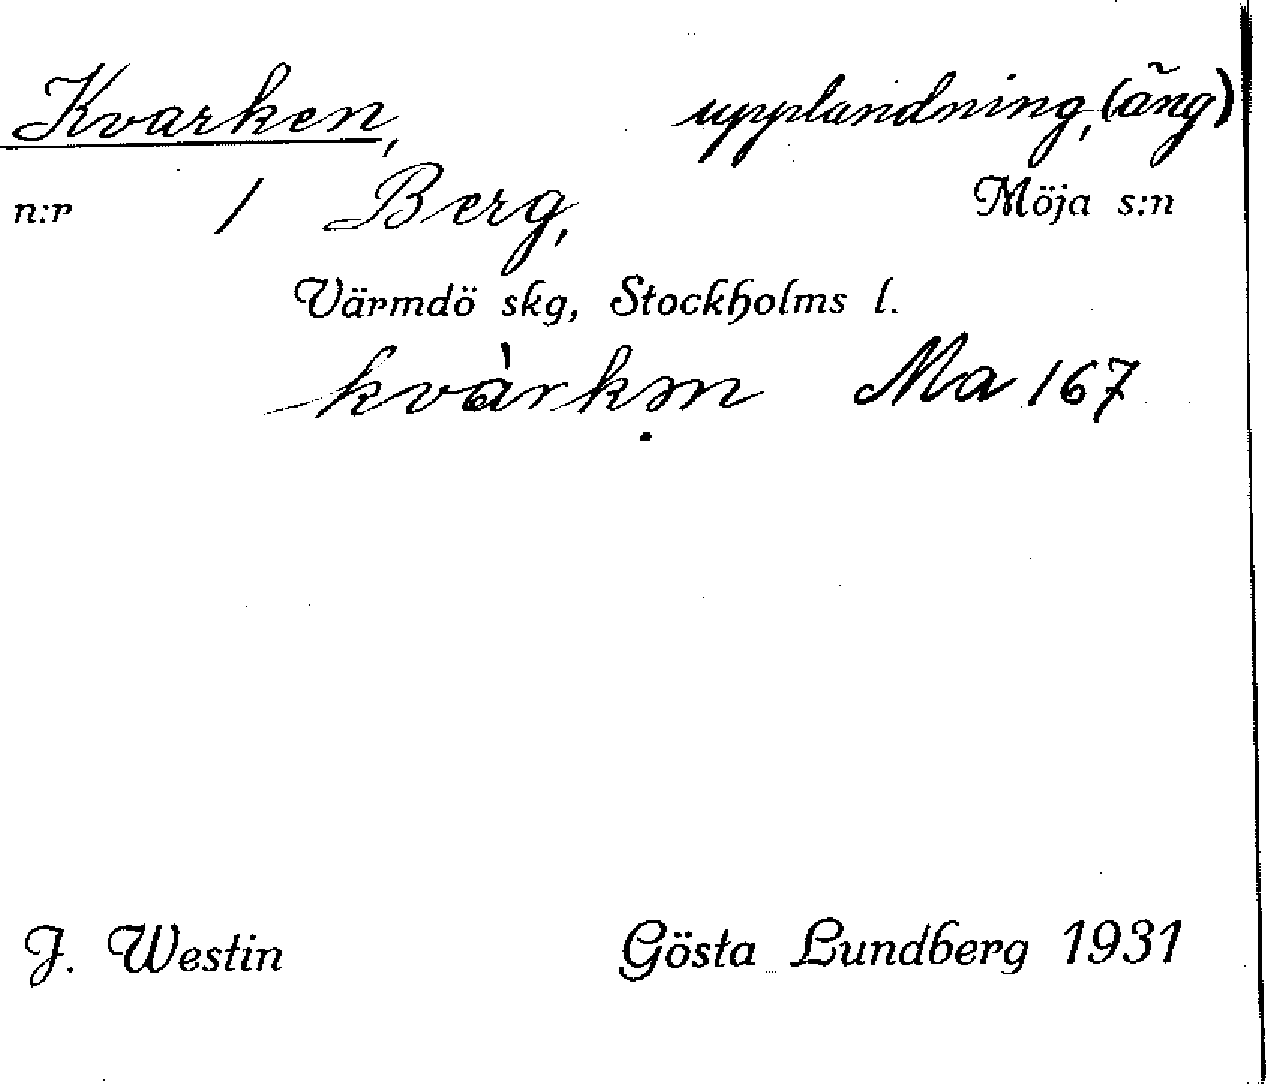 Kvarken, upplandning, (äng)
n:r 1 Berg, Möja s:n
Värmdö skg, Stockholms l.
kvàrkən Ma 167
J. Westin Gösta Lundberg 1931